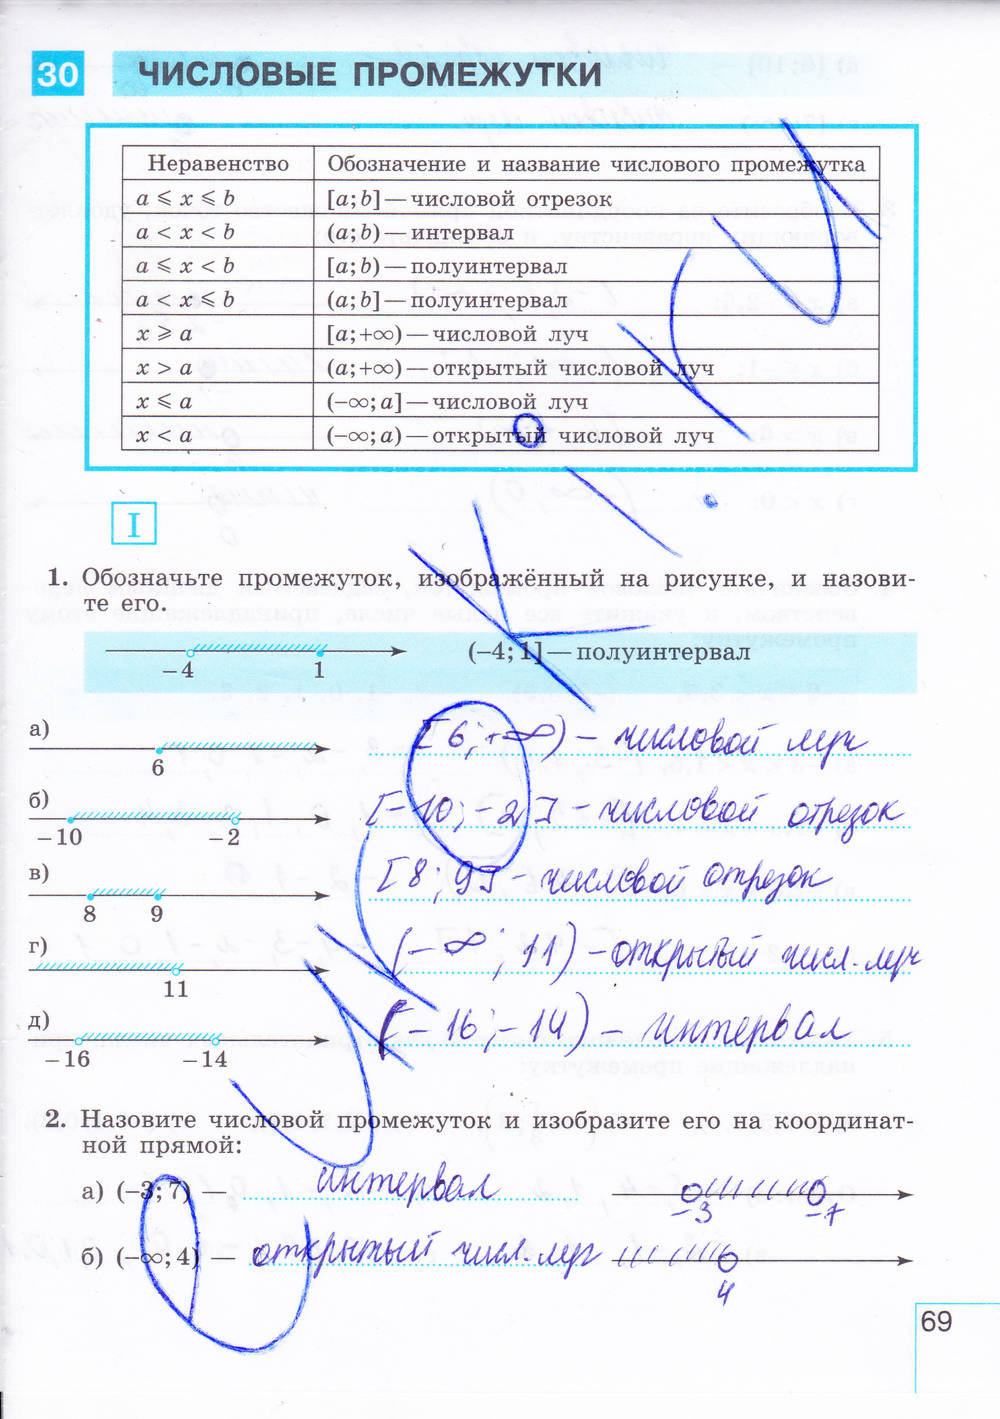 30 ЧИСЛОВЫЕ ПРОМЕЖУТКИ
Неравенство Обозначение и название числового промежутка
a ⩽ x ⩽ b [a; b] — числовой отрезок
a < x < b (a; b) — интервал
a ⩽ x < b [a; b) — полуинтервал
a < x ⩽ b (a; b] — полуинтервал
x ⩾ a [a; +∞) — числовой луч
x > a (a; +∞) — открытый числовой луч
x ⩽ a (−∞; a] — числовой луч
x < a (−∞; a) — открытый числовой луч
I
1. Обозначьте промежуток, изображённый на рисунке, и назови-
те его.
−4 1 (−4; 1] — полуинтервал
а) 6 [6; +∞) – числовой луч
б) −10 −2 [−10; −2] – числовой отрезок
в) 8 9 [8; 9] – числовой отрезок
г) 11 (−∞; 11) – открытый числ. луч
д) −16 −14 (−16; −14) – интервал
2. Назовите числовой промежуток и изобразите его на координат-
ной прямой:
а) (−3; 7) — интервал −3 −7
б) (−∞; 4) — открытый числ. луч 4
69